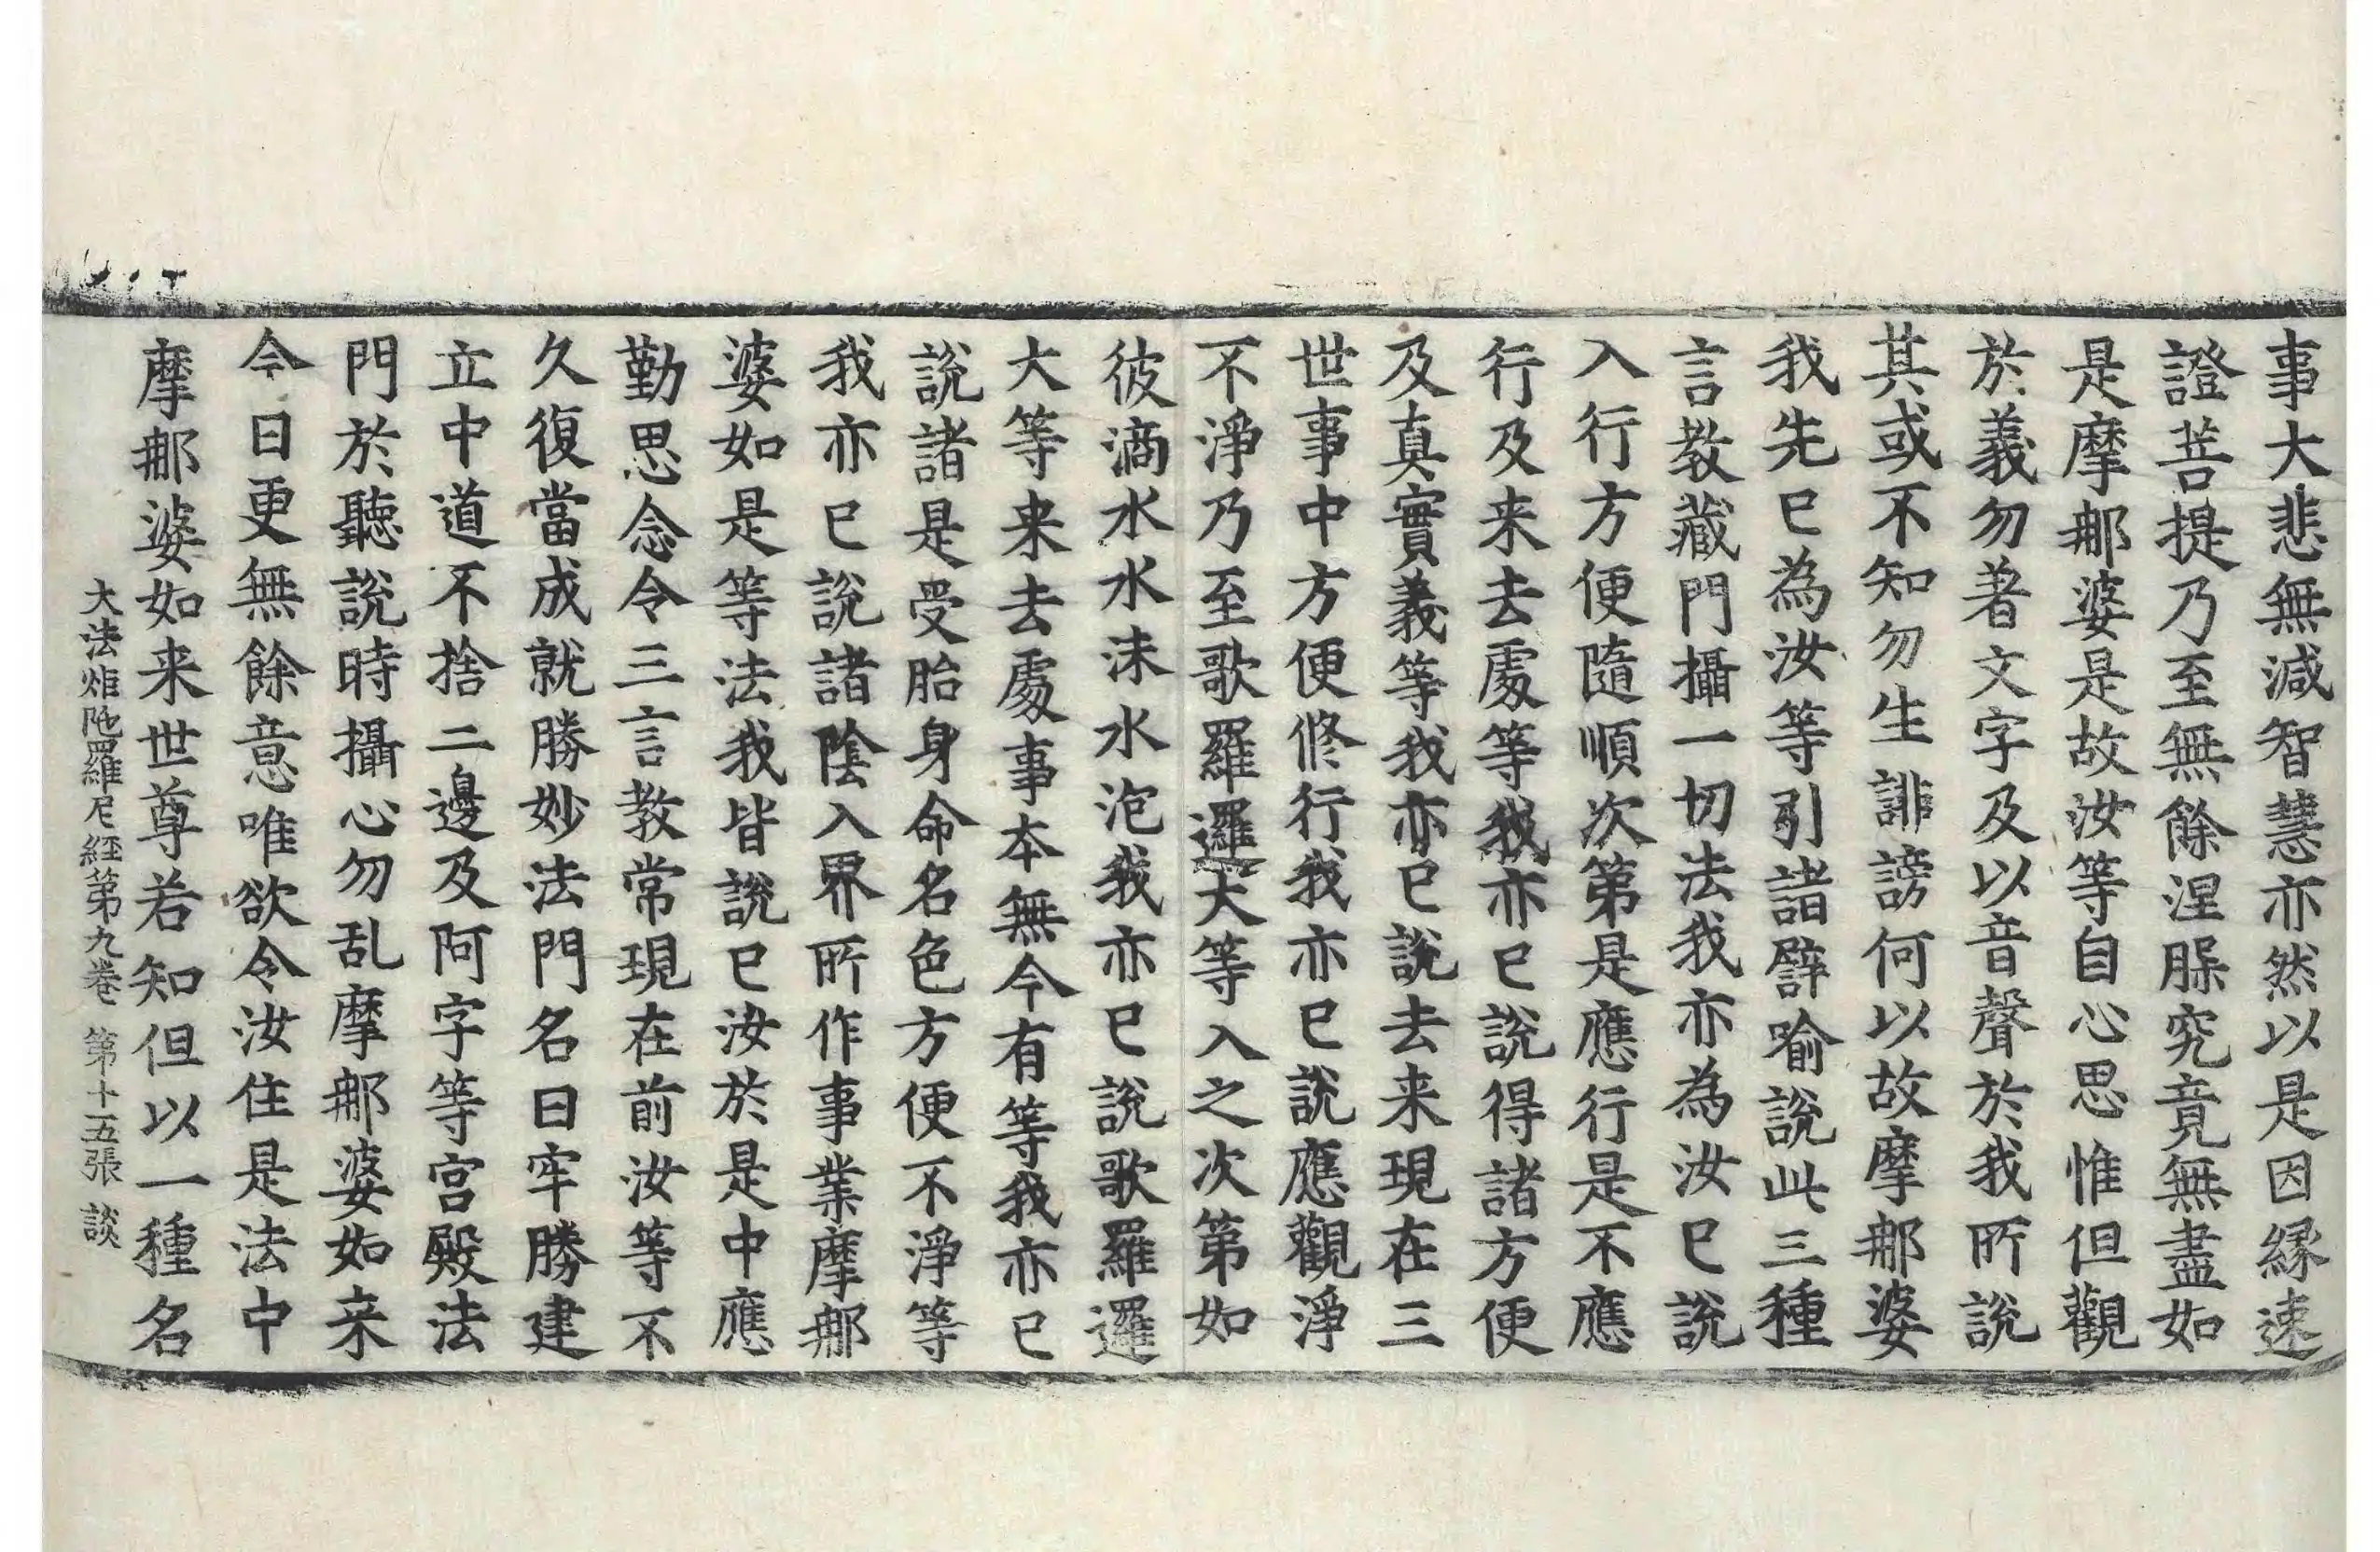 事大悲無減智慧亦然以是因縁速
證菩提乃至無餘涅槃究竟無盡如
是摩那婆是故汝等自心思惟但觀
於義勿著文字及以音聲於我所說
其或不知勿生誹謗何以故摩那婆
我先已為汝等引諸譬喻說此三種
言教藏門攝一切法我亦為汝已說
入行方便隨順次第是應行是不應
行及来去處等我亦已說得諸方便
及真實義等我亦已說去来現在三
世事中方便修行我亦已說應觀淨
不淨乃至歌羅邏大等入之次第如
彼滴水水沫水泡我亦已說歌羅邏
大等来去處事本無今有等我亦已
說諸是受胎身命名色方便不淨等
我亦已說諸陰入界所作事業摩那
婆如是等法我皆說已汝於是中應
勤思念令三言教常現在前汝等不
久復當成就勝妙法門名曰牢勝建
立中道不捨二邊及阿字等宮殿法
門於聽說時攝心勿乱摩那婆如来
今日更無餘意唯欲令汝住是法中
摩那婆如来世尊若知但以一種名
大法炬陁羅尼經第九卷 第十五張 談